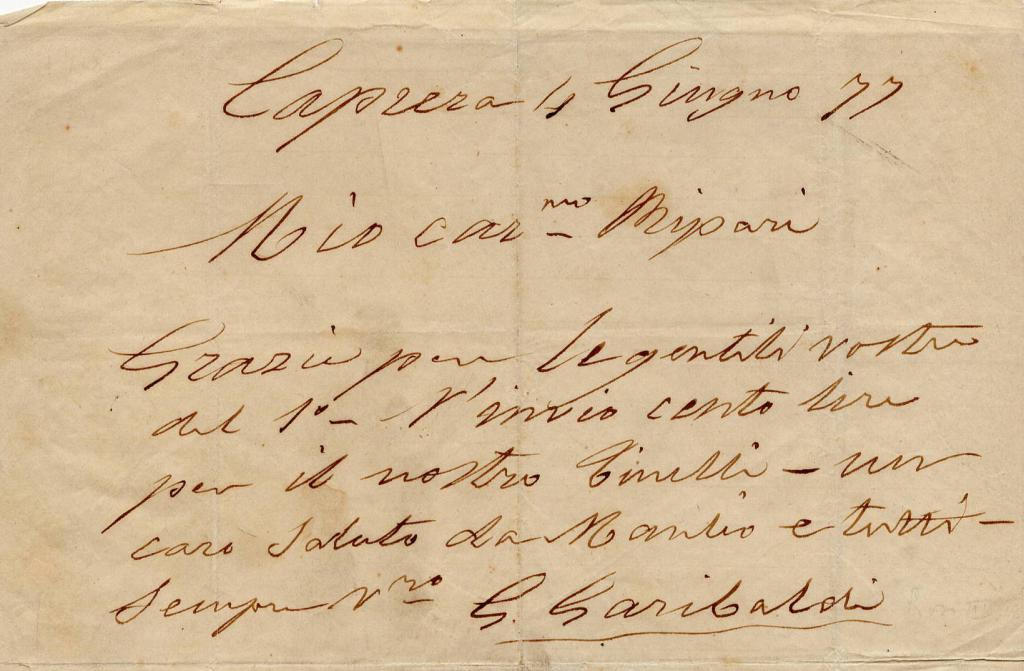 Caprera 4 Giugno 77
Mio car.mo Ripari
Grazie per le gentili vostre
del 1°- V'invio cento lire
per il nostro Tinelli - un
caro saluto da Manlio e tutti -
Sempre V.ro G. Garibaldi